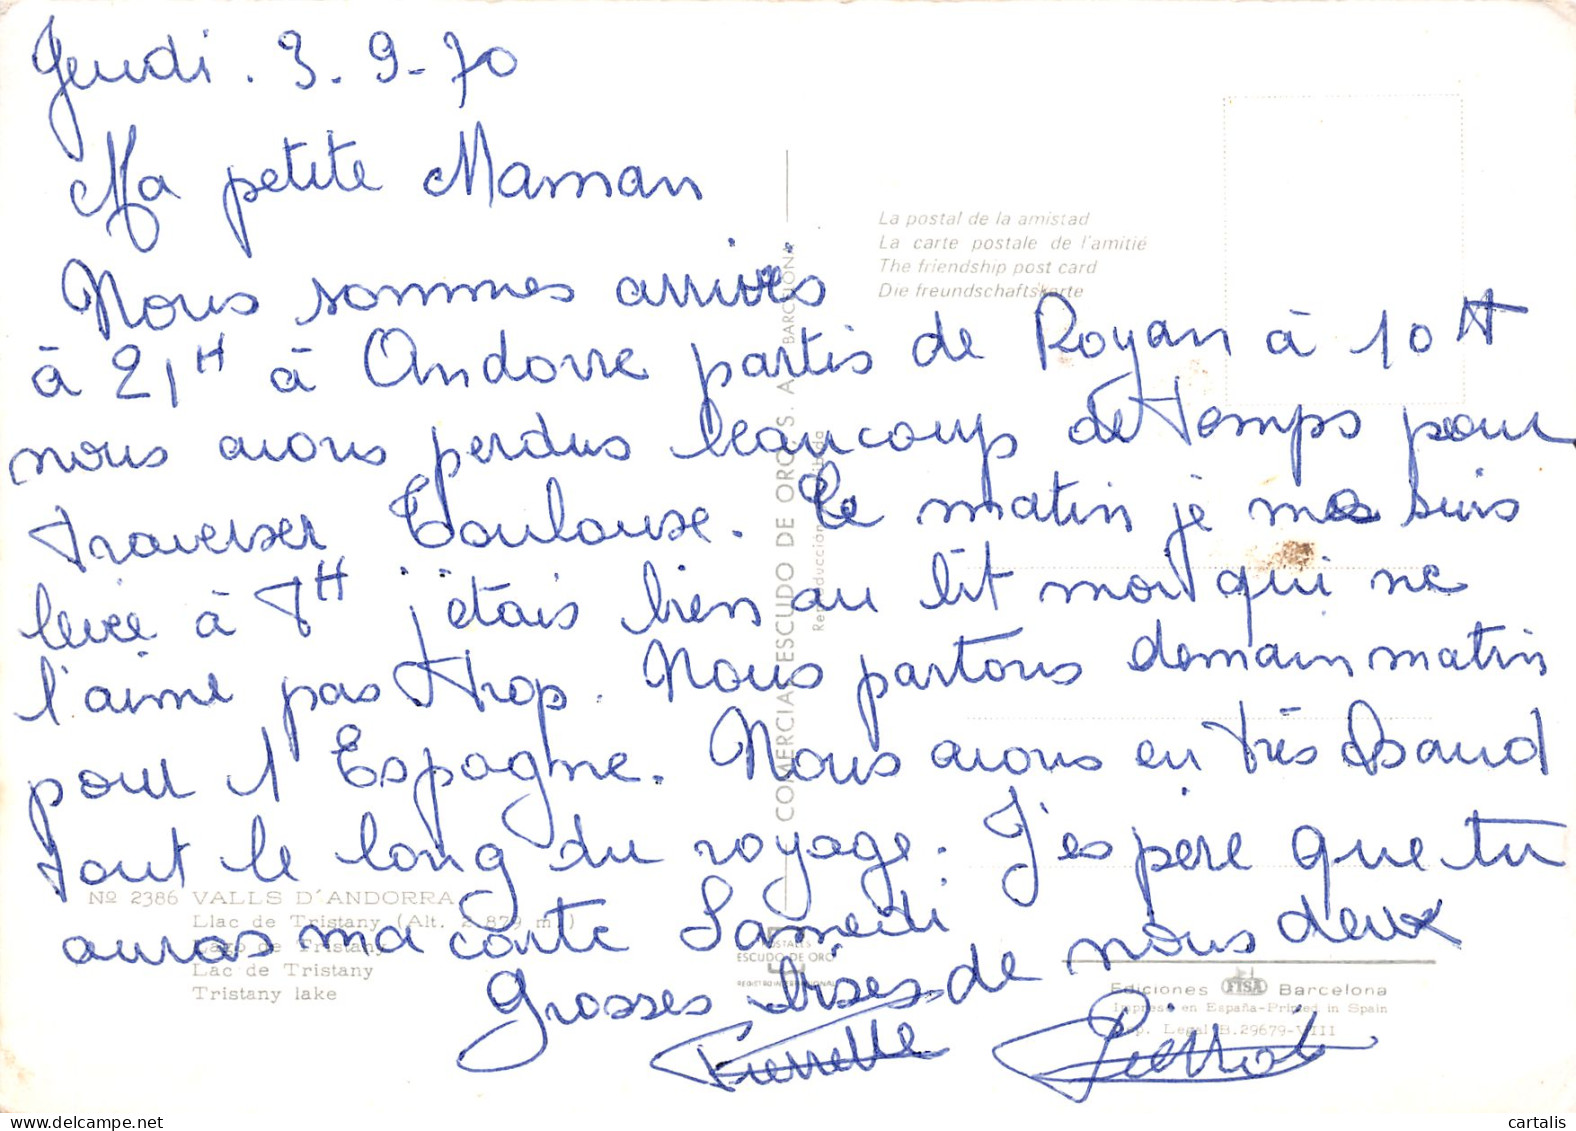 Jeudi . 3. 9. 70
Ma petite Maman
Nous sommes arrivés
à 21H à Andorre partis de Royan à 10H
nous avons perdus beaucoup de temps pour
traverser Toulouse. Le matin je me suis
levée à 7H j'étais bien au lit moi qui ne
l'aime pas trop. Nous partons demain matin
pour l'Espagne. Nous avons eu très chaud
tout le long du voyage. J'espère que tu
auras ma carte Samedi
Grosses bises de nous deux
Pierrette Pierrot
La postal de la amistad
La carte postale de l'amitié
The friendship post card
Die freundschaftskarte
COMERCIAL ESCUDO DE ORO, S. A. BARCELONA
Reproducción prohibida
Nº 2386 VALLS D'ANDORRA
Llac de Tristany (Alt. 2.879 m.)
Lago de Tristany
Lac de Tristany
Tristany lake
POSTALES
ESCUDO DE ORO
REGISTRO INTERNACIONAL
Ediciones FISA Barcelona
Impreso en España-Printed in Spain
Dep. Legal B.29679-VIII
cartalis